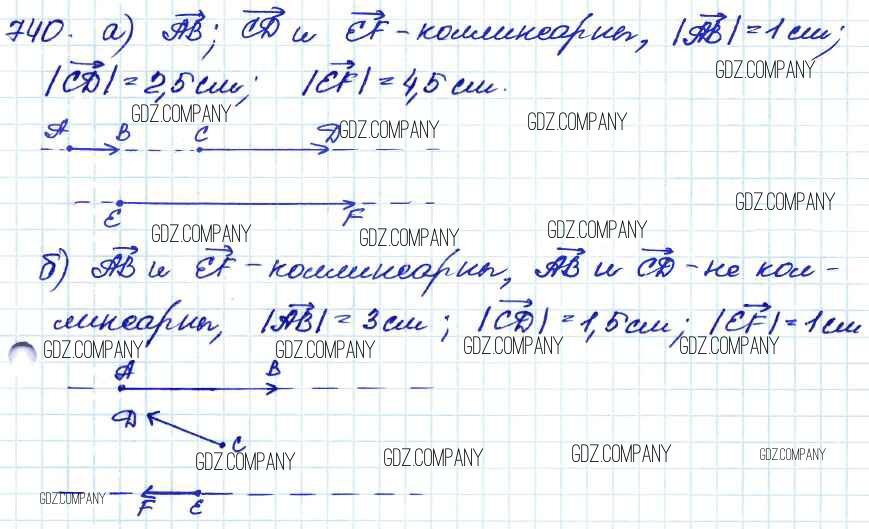 740. а) AB; CD и EF – коллинеарны, |AB| = 1 см;
GDZ.COMPANY
|CD| = 2,5 см; |EF| = 4,5 см.
GDZ.COMPANY GDZ.COMPANY GDZ.COMPANY
A B C D
GDZ.COMPANY
E F
GDZ.COMPANY GDZ.COMPANY GDZ.COMPANY
б) AB и EF – коллинеарны, AB и CD – не кол-
линеарны, |AB| = 3 см; |CD| = 1,5 см; |EF| = 1 см
GDZ.COMPANY GDZ.COMPANY GDZ.COMPANY GDZ.COMPANY
A B
D
C
GDZ.COMPANY GDZ.COMPANY GDZ.COMPANY GDZ.COMPANY
GDZ.COMPANY
F E